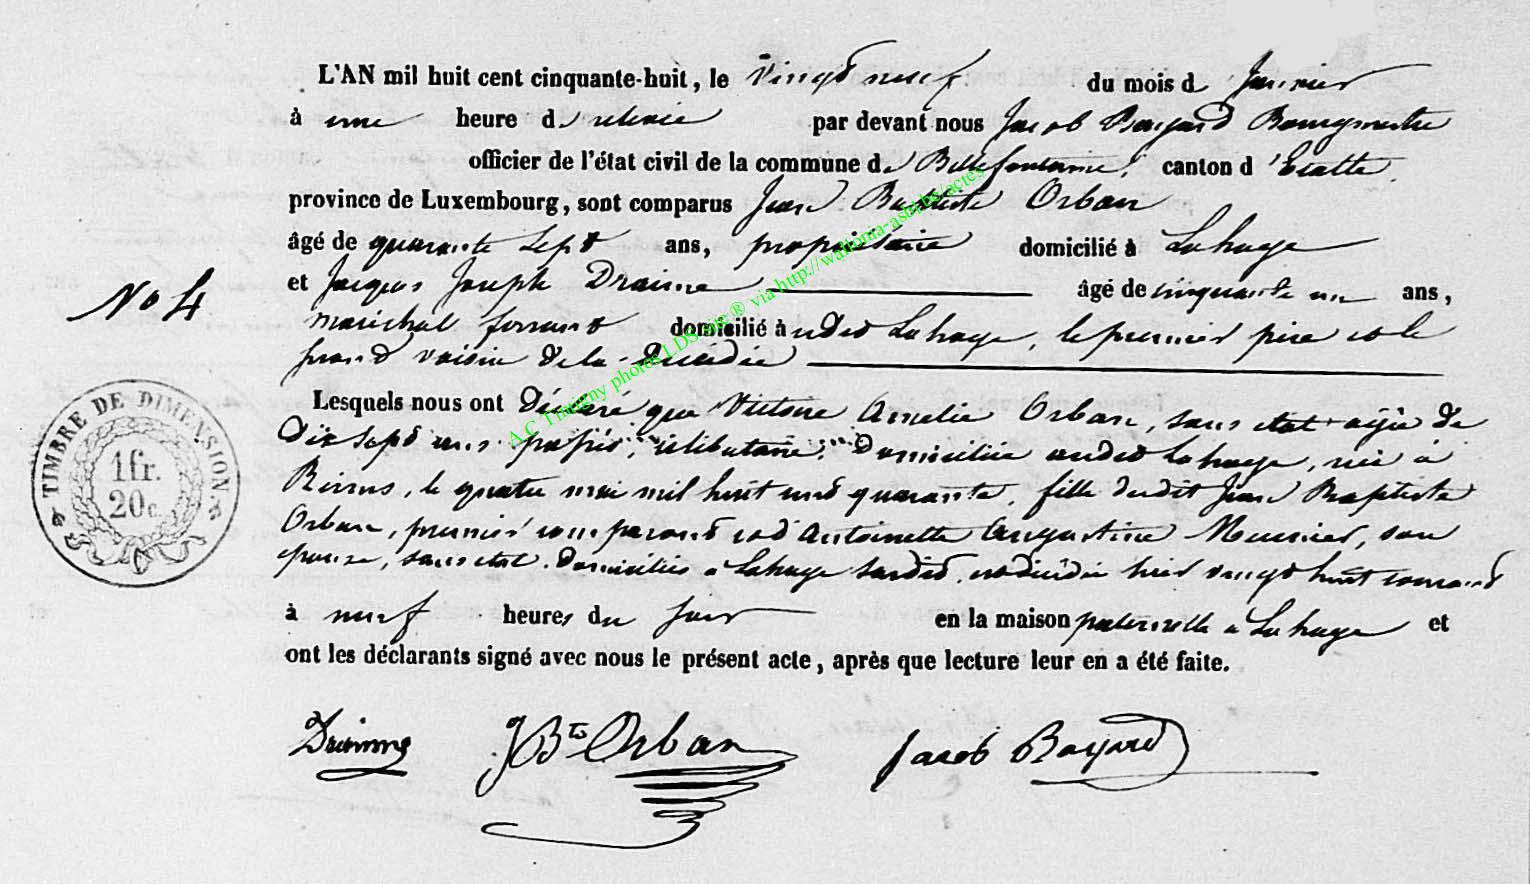 L'AN mil huit cent cinquante-huit, le vingt neuf du mois de Janvier
à une heure de relevée par devant nous Jacob Bayard Bourgmestre
officier de l'état civil de la commune de Bellefontaine, canton d'Etalle,
province de Luxembourg, sont comparus Jean Baptiste Orban
âgé de quarante Sept ans, propriétaire domicilié à Lahage
et Jacques Joseph Draime âgé de cinquante un ans,
No 4
maréchal ferrant domicilié à udit Lahage, le premier père et le
second voisin de la Décédée
Lesquels nous ont Déclaré que Victoire Amelie Orban, sans etat agée de
Dix Sept ans passés, célibataire, Domiciliée audit Lahage, née à
le quatre mai mil huit cent quarante, fille dudit Jean Baptiste
Orban, premier comparant et d'Antoinette Augustine Meunier, son
epouse, sans etat, Domiciliés à Lahage susdit, est décédée hier vingt huit courant
à neuf heures du soir en la maison paternelle à Lahage et
ont les déclarants signé avec nous le présent acte, après que lecture leur en a été faite.
TIMBRE DE DIMENSION
1 fr.
20 c.
JBte Orban Jacob Bayard
A.C Tintigny photos LDS ® via http://wallonia-asbl.be/actes